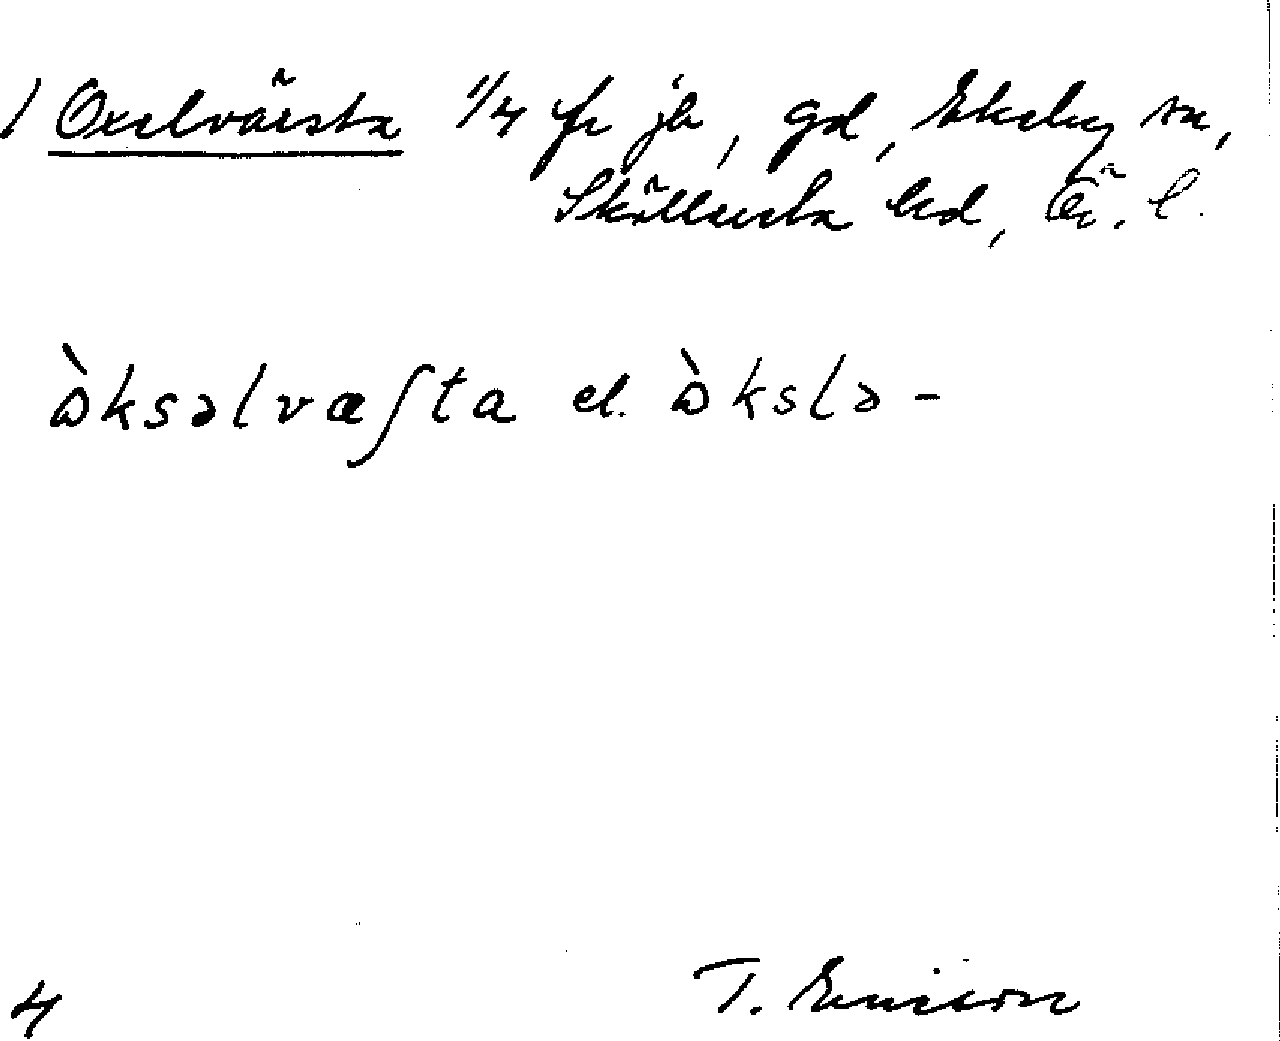 / Oxelvärsta 1/4 fr jb, gd, Ekeby sn,
Sköllersta hd, Ör. l.
òksəlvæʃta el. òkslə-
4 T. Ericson